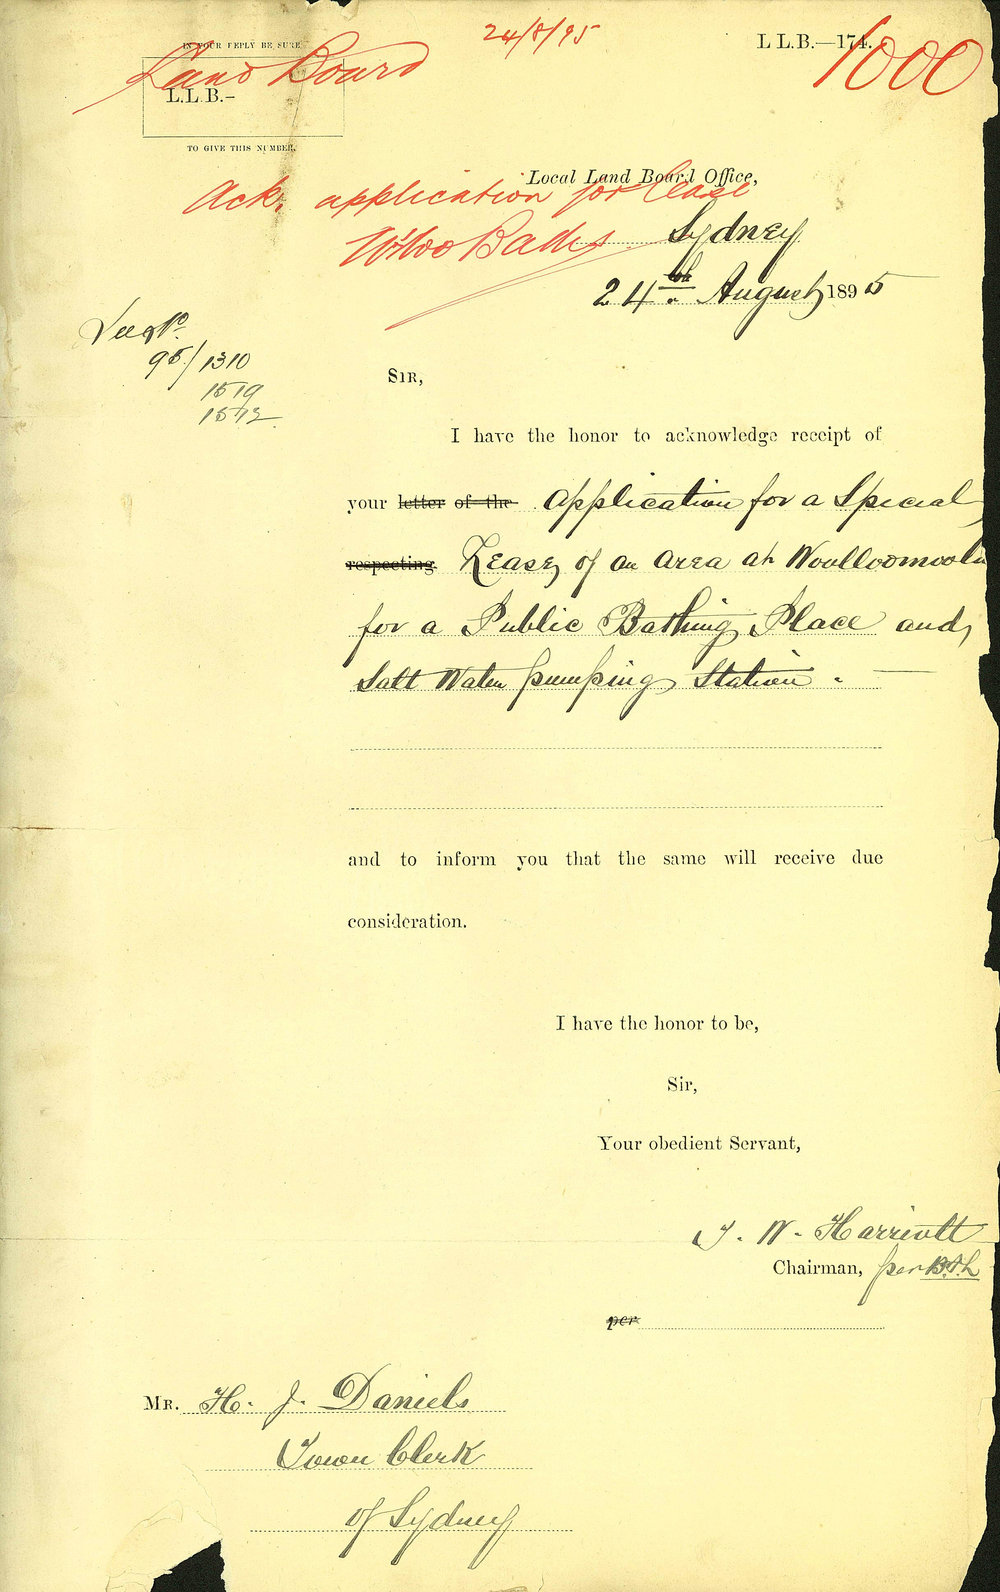 IN YOUR REPLY BE SURE
24/8/95
L L.B.—174.
1000
Land Board
L.L.B.–
TO GIVE THIS NUMBER.
Local Land Board Office,
Ack. application for lease
W'loo Baths
Sydney
24th August 1895
95/1310
1519
1572
SIR,
I have the honor to acknowledge receipt of
your letter of the Application for a Special
respecting Lease of an area at Woolloomooloo
for a Public Bathing Place and
Salt Water pumping Station.
and to inform you that the same will receive due
consideration.
I have the honor to be,
Sir,
Your obedient Servant,
J. W. Harriott
Chairman, per
per
MR. H. J. Daniels
Town Clerk
of Sydney